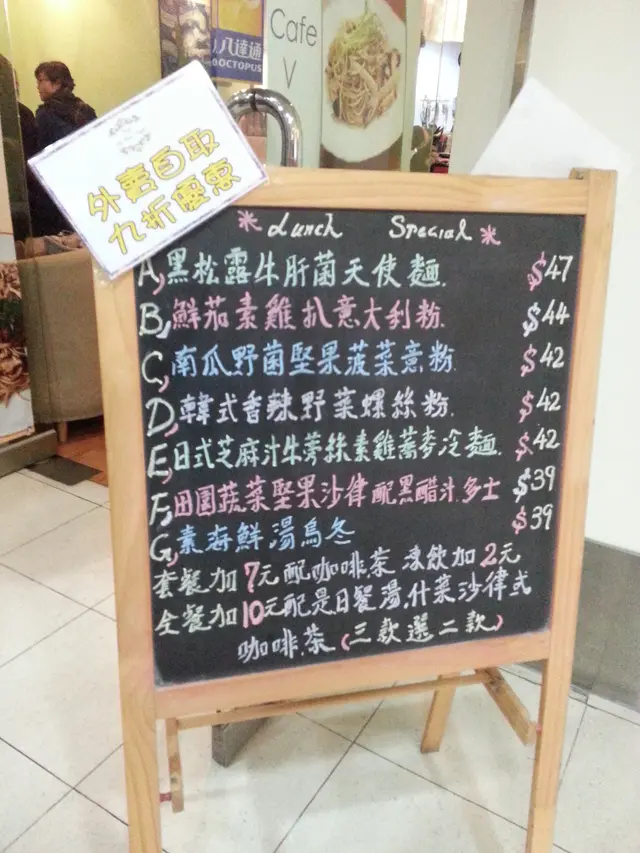 八達通
OCTOPUS
Cafe
V
外賣自取
九折優惠
* Lunch Special *
A, 黑松露牛肝菌天使麵. $47
B, 鮮茄素雞扒意大利粉. $44
C, 南瓜野菌堅果菠菜意粉. $42
D, 韓式香辣野菜螺絲粉. $42
E, 日式芝麻汁牛蒡絲素雞蕎麥冷麵. $42
F, 田園蔬菜堅果沙律配黑醋汁.多士 $39
G, 素海鮮湯烏冬 $39
套餐加7元配咖啡茶 凍飲加2元
全餐加10元配是日餐湯.什菜沙律或
咖啡.茶(三款選二款)